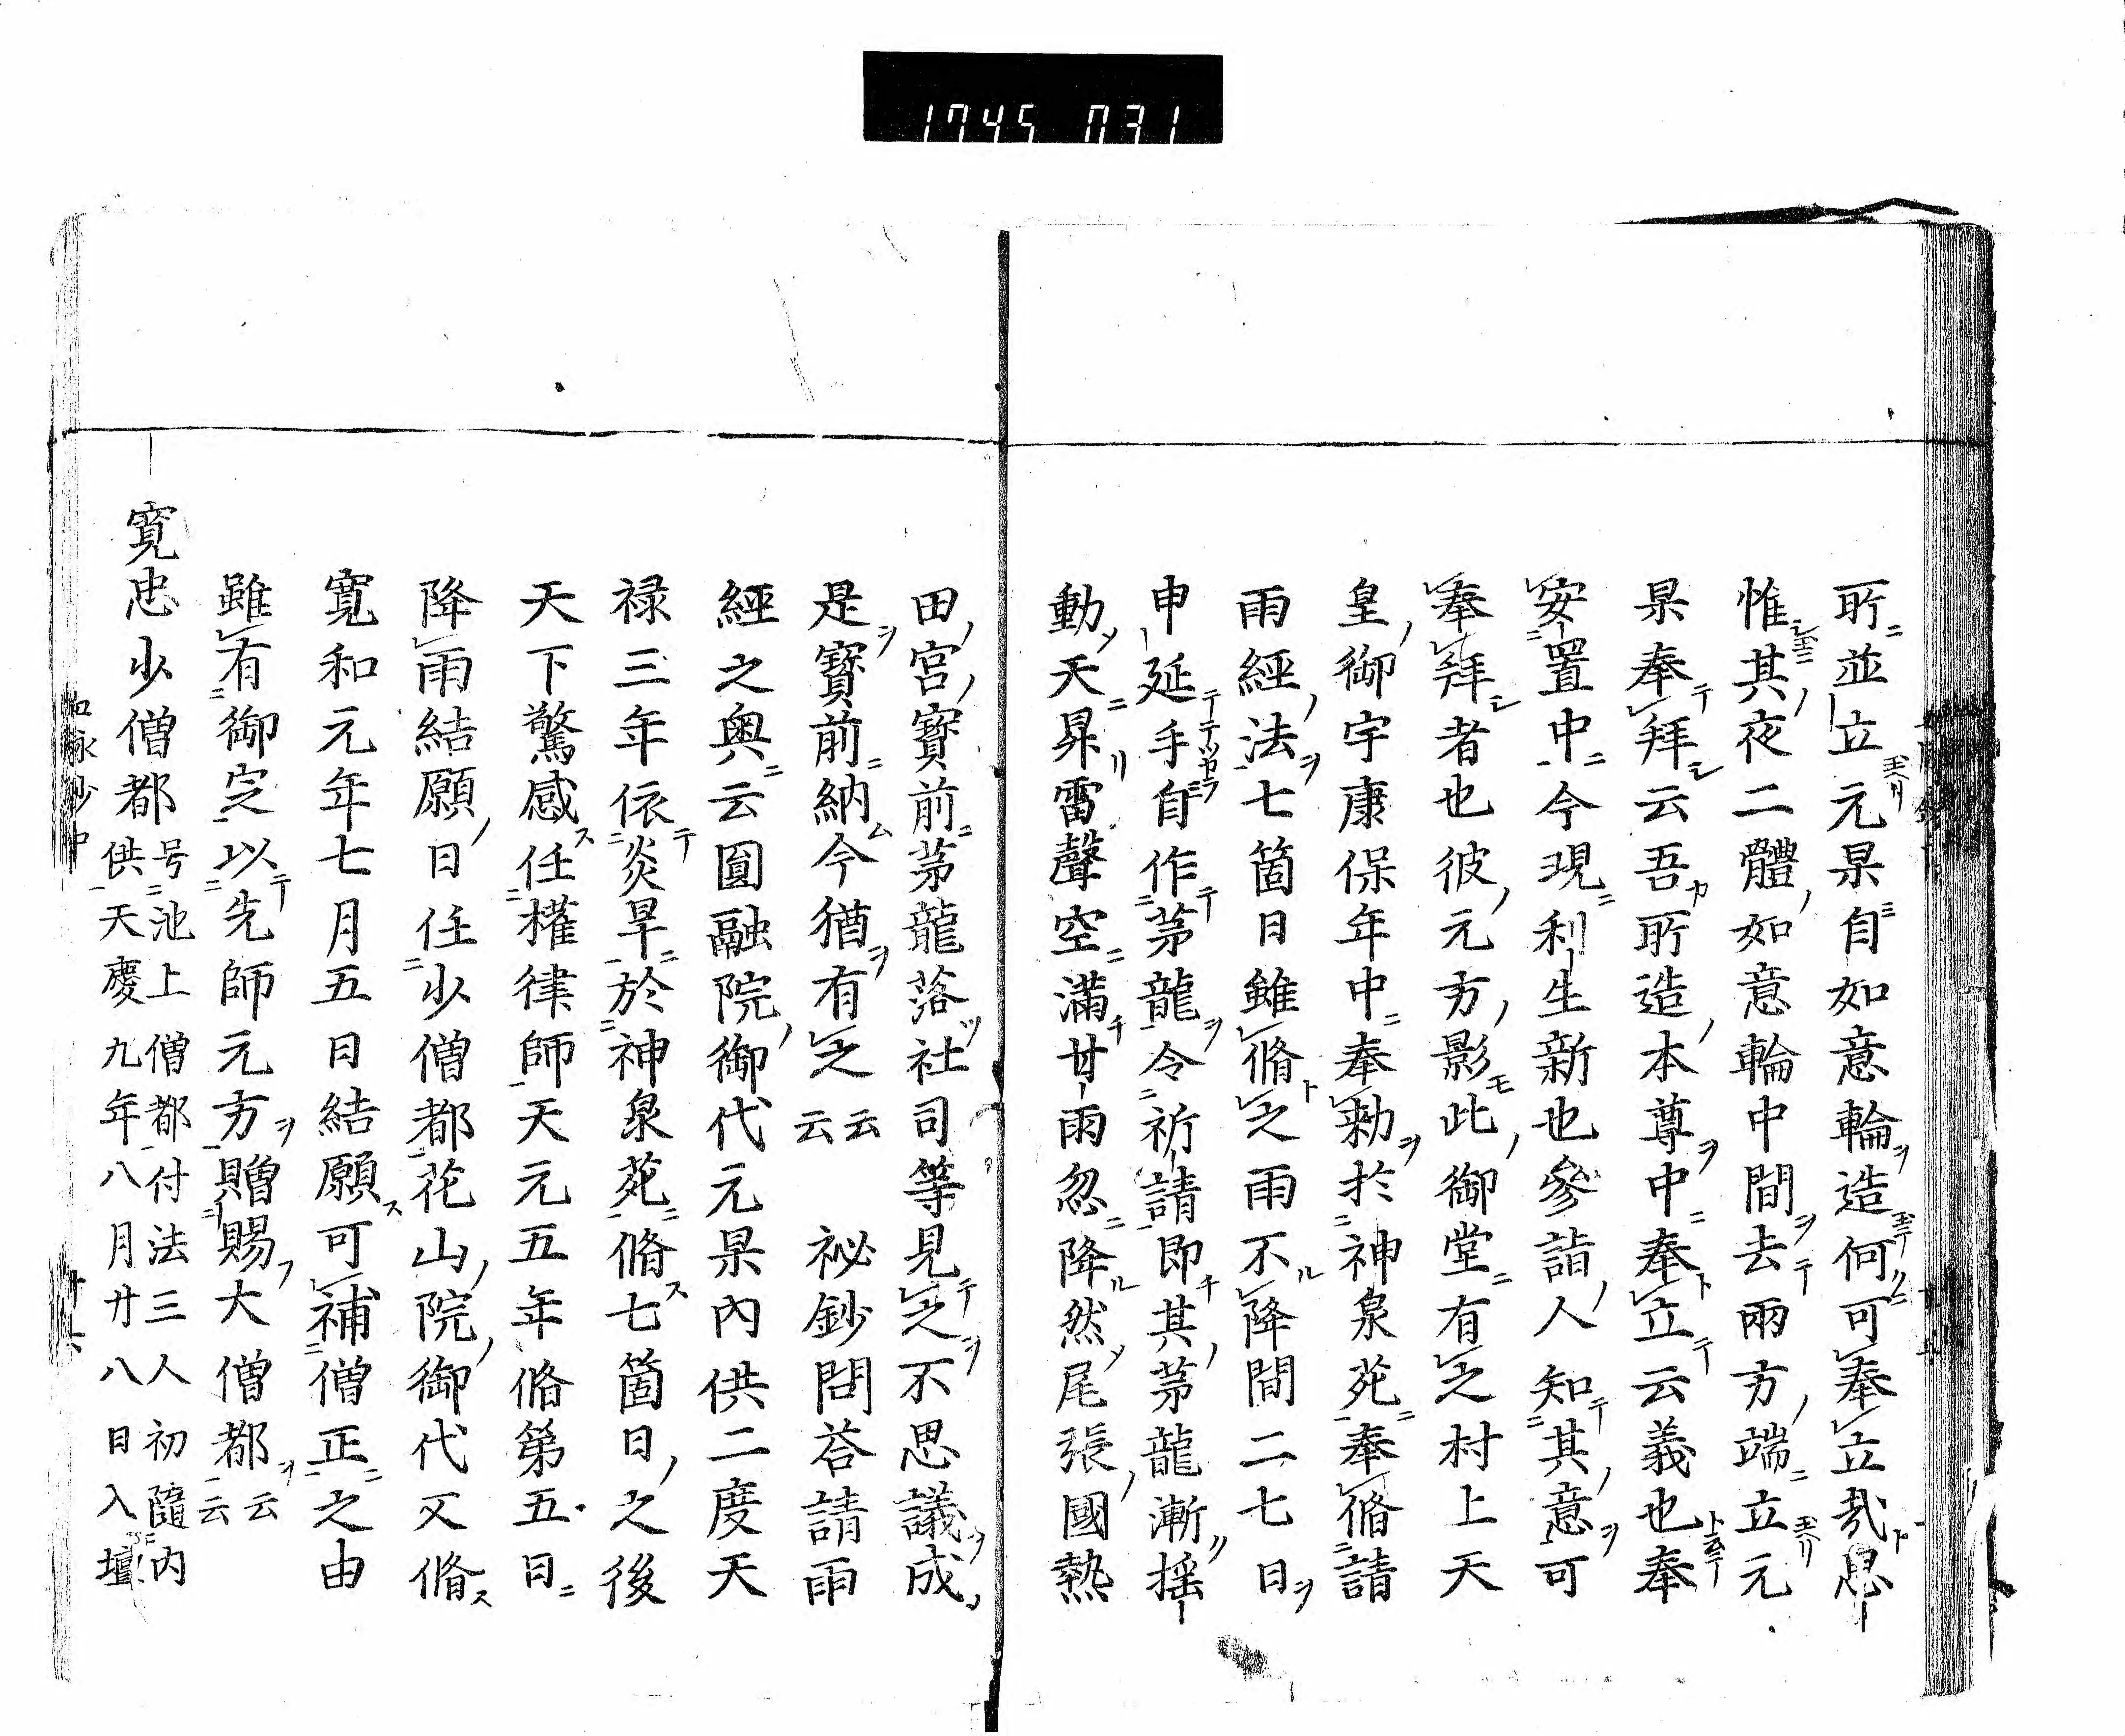 1745 031
所並立元杲自如意輪造何可奉立哉思
惟其夜二體如意輪中間去兩方端立元
杲奉拜云吾所造本尊中奉立云義也奉
安置中今現利生新也參詣人知其意可
奉拜者也彼元方影此御堂有之村上天
皇御宇康保年中奉勅於神泉苑奉脩請
雨經法七箇日雖脩之雨不降間二七日
申延手自作茅龍令祈請即其茅龍漸搖
動天昇雷聲空滿甘雨忽降然尾張國熱
田宮寳前茅龍落社司等見之不思議成
是寳前納今猶有之云云 祕鈔問荅請雨
經之奧云圓融院御代元杲內供二度天
祿三年依炎旱於神泉苑脩七箇日之後
天下驚感任權律師天元五年脩第五日
降雨結願日任少僧都花山院御代又脩
寛和元年七月五日結願可補僧正之由
雖有御定以先師元方贈賜大僧都云云
寛忠少僧都号池上僧都付法三人初隨内
供天慶九年八月廿八日入壇